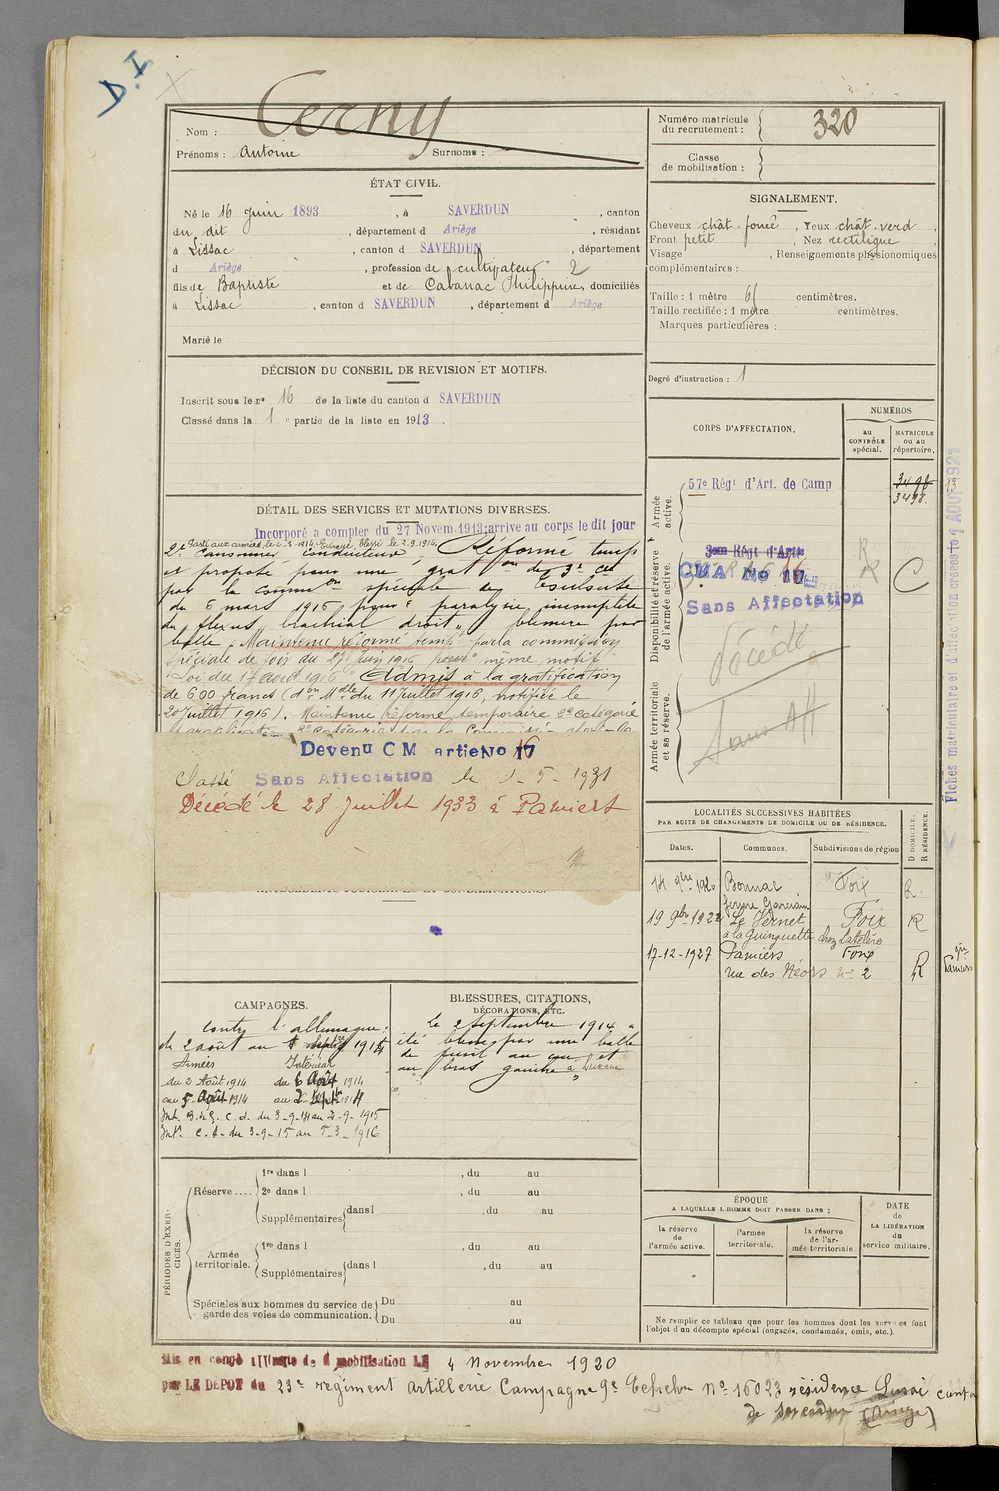 D.I
X
Nom : Cerny
Prénoms : Antoine Surnoms :
Numéro matricule du recrutement : 320
Classe de mobilisation :
ÉTAT CIVIL.
Né le 16 Juin 1893, à SAVERDUN, canton
du dit, département d Ariège, résidant
à Lissac, canton d SAVERDUN, département
d Ariège, profession de cultivateur 2
fils de Baptiste et de Cabanac Philippine, domiciliés
à Lissac, canton d SAVERDUN, département d Ariège
Marié le
SIGNALEMENT.
Cheveux chât. foncé, Yeux chât. verd,
Front petit, Nez rectiligne,
Visage, Renseignements physionomiques
complémentaires :
Taille : 1 mètre 61 centimètres.
Taille rectifiée : 1 mètre centimètres.
Marques particulières :
Degré d'instruction : 1
DÉCISION DU CONSEIL DE REVISION ET MOTIFS.
Inscrit sous le n° 16 de la liste du canton d SAVERDUN
Classé dans la 1e partie de la liste en 1913.
DÉTAIL DES SERVICES ET MUTATIONS DIVERSES.
Incorporé a compter du 27 Novem. 1913; arrive au corps le dit jour
Parti aux armées le 2-8-1914. Evacué, blessé le 2.9.1914
2e Canonnier conducteur. Réformé temp
et proposé pour une grat on de 3e cat
par la comm on spéciale de
du 6 mars 1916 pour paralysie incomplète
du plexus brachial droit, blessure par
balle. Maintenu réformé temp re par la commission
spéciale de Foix du 27 Juin 1916 pour même motif
Loi du 17 août 1916 Admis à la gratification
de 600 francs (don Mlle du 11 Juillet 1916, notifiée le
20 Juillet 1916). Maintenu réformé temporaire 2e catégorie
Devenu C M artie No 17
Classé Sans Affectation le 1-5-1931
Décédé le 28 Juillet 1933 à Pamiers
ANTÉCÉDENTS JUDICIAIRES ET CONDAMNATIONS.
CORPS D'AFFECTATION.
NUMÉROS
au CONTRÔLE spécial.
MATRICULE ou au répertoire.
Armée active.
57e Régt d'Art. de Camp
3498
3498
13
Disponibilité et réserve de l'armée active.
Régt d'Artie
CMA No 17
Sans Affectation
R
R
C
décédé
Armée territoriale et sa réserve.
Sans Aff
Fiches matriculaire et d'affectation créées le 1 AOUT 1921
LOCALITÉS SUCCESSIVES HABITÉES
PAR SUITE DE CHANGEMENTS DE DOMICILE OU DE RÉSIDENCE.
Dates. Communes. Subdivisions de région
D DOMICILE. R RÉSIDENCE.
14 9bre 1920 Bonnac Foix R.
19 9bre 1922 Le Vernet Foix R
à la Guinguette chez
17-12-1927 Pamiers Foix
rue des n° 2 R
Pamiers
CAMPAGNES.
contre l'allemagne :
du 2 août au 1914
Armées Intérieur
du 2 Août 1914 du 6 Août 1914
au 5 Août 1914 au 2 Sept 1914
Int. B. de G. C. d. du 3-9-14 au 2-9-1915
Int. C. d. du 3-9-15 au 5-3-1916
BLESSURES, CITATIONS,
DÉCORATIONS, ETC.
Le 2 Septembre 1914 a
été blessé par une balle
de fusil au cou et
au bras gauche à
PÉRIODES D'EXERCICES.
Réserve.... 1re dans l, du au
2e dans l, du au
Supplémentaires dans l, du au
Armée territoriale. 1re dans l, du au
Supplémentaires dans l, du au
Spéciales aux hommes du service de garde des voies de communication. Du au
Du au
ÉPOQUE
A LAQUELLE L'HOMME DOIT PASSER DANS :
la réserve de l'armée active.
l'armée territoriale.
la réserve de l'armée territoriale.
DATE de LA LIBÉRATION du service militaire.
Ne remplir ce tableau que pour les hommes dont les services font
l'objet d'un décompte spécial (engagés, condamnés, omis, etc.).
Mis en congé illimité de démobilisation LE 4 Novembre 1920
par LE DEPOT du 23e régiment artillerie Campagne 9e Echelon No 16023 résidence canton
de Saverdun (Ariège)